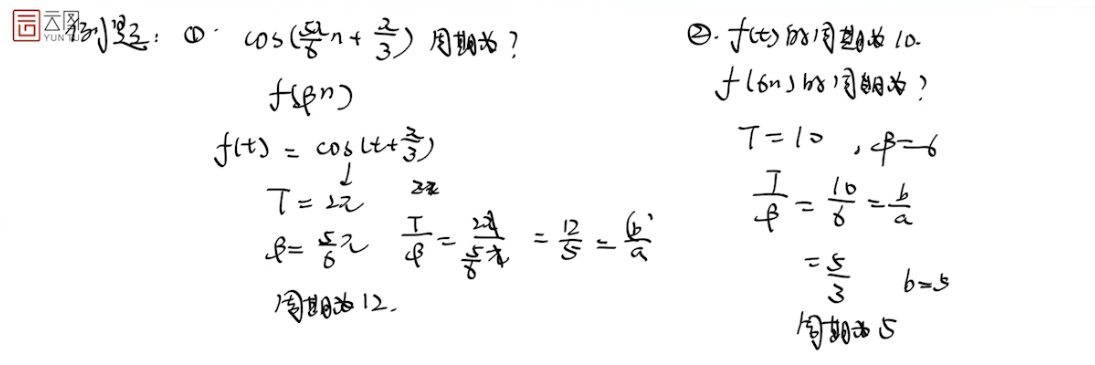 云图
YUNTU
例题: ①. cos(5π/6 n + π/3) 周期为?
f(βn)
f(t) = cos(t + π/3)
↓
T = 2π
β = 5/6 π T/β = 2π/(5/6 π) = 12/5 = b/a
周期为12.
②. f(t)的周期为10.
f(6n)的周期为?
T = 10 , β = 6
T/β = 10/6 = b/a
= 5/3 b = 5
周期为5